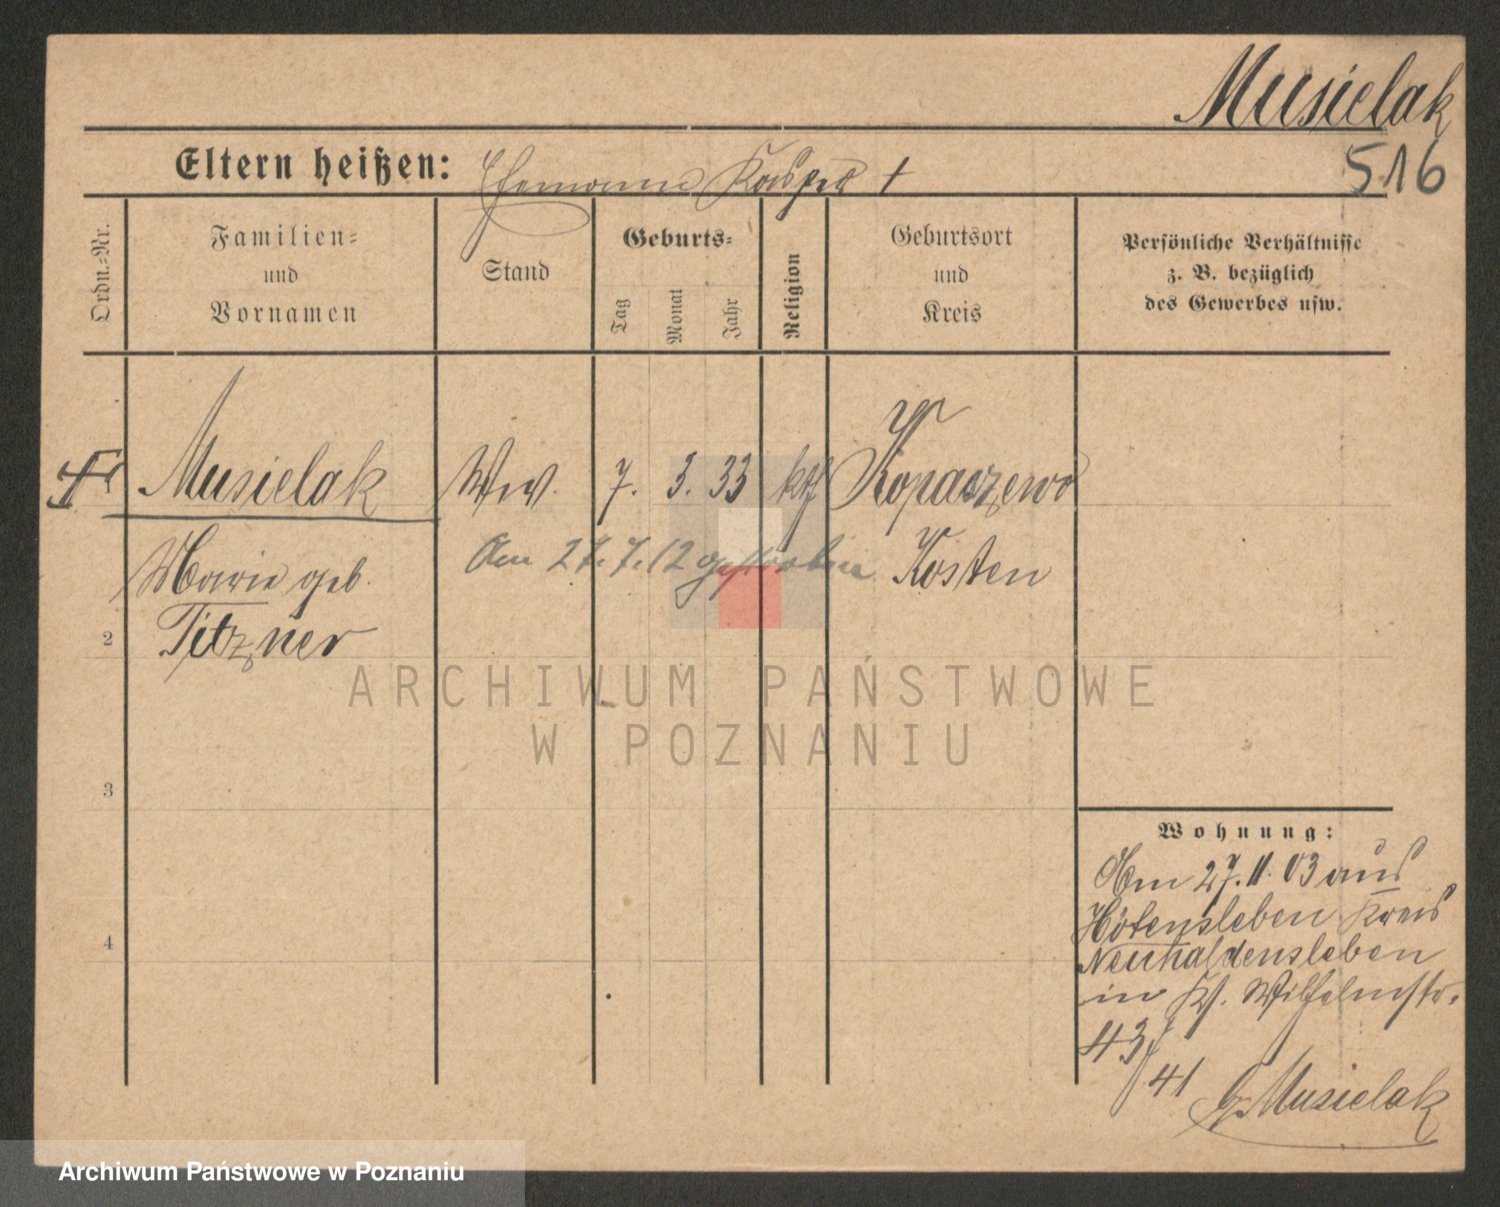 Musielak
516
Eltern heißen: Ehemann Kasper †
Ordn.-Nr.
Familien-
und
Vornamen
Stand
Geburts-
Tag
Monat
Jahr
Religion
Geburtsort
und
Kreis
Persönliche Verhältnisse
z. B. bezüglich
des Gewerbes usw.
1 Musielak Ww. 7. 3. 33 kth Kopaszewo
Marie geb. Am 27.7.12 gestorben Kosten
2 Titzner
3
4
Wohnung:
Am 27.11.03 aus
Hötensleben Kreis
Neuhaldensleben
in Wilhelmstr.
43/41
Musielak
ARCHIWUM PAŃSTWOWE
W POZNANIU
Archiwum Państwowe w Poznaniu